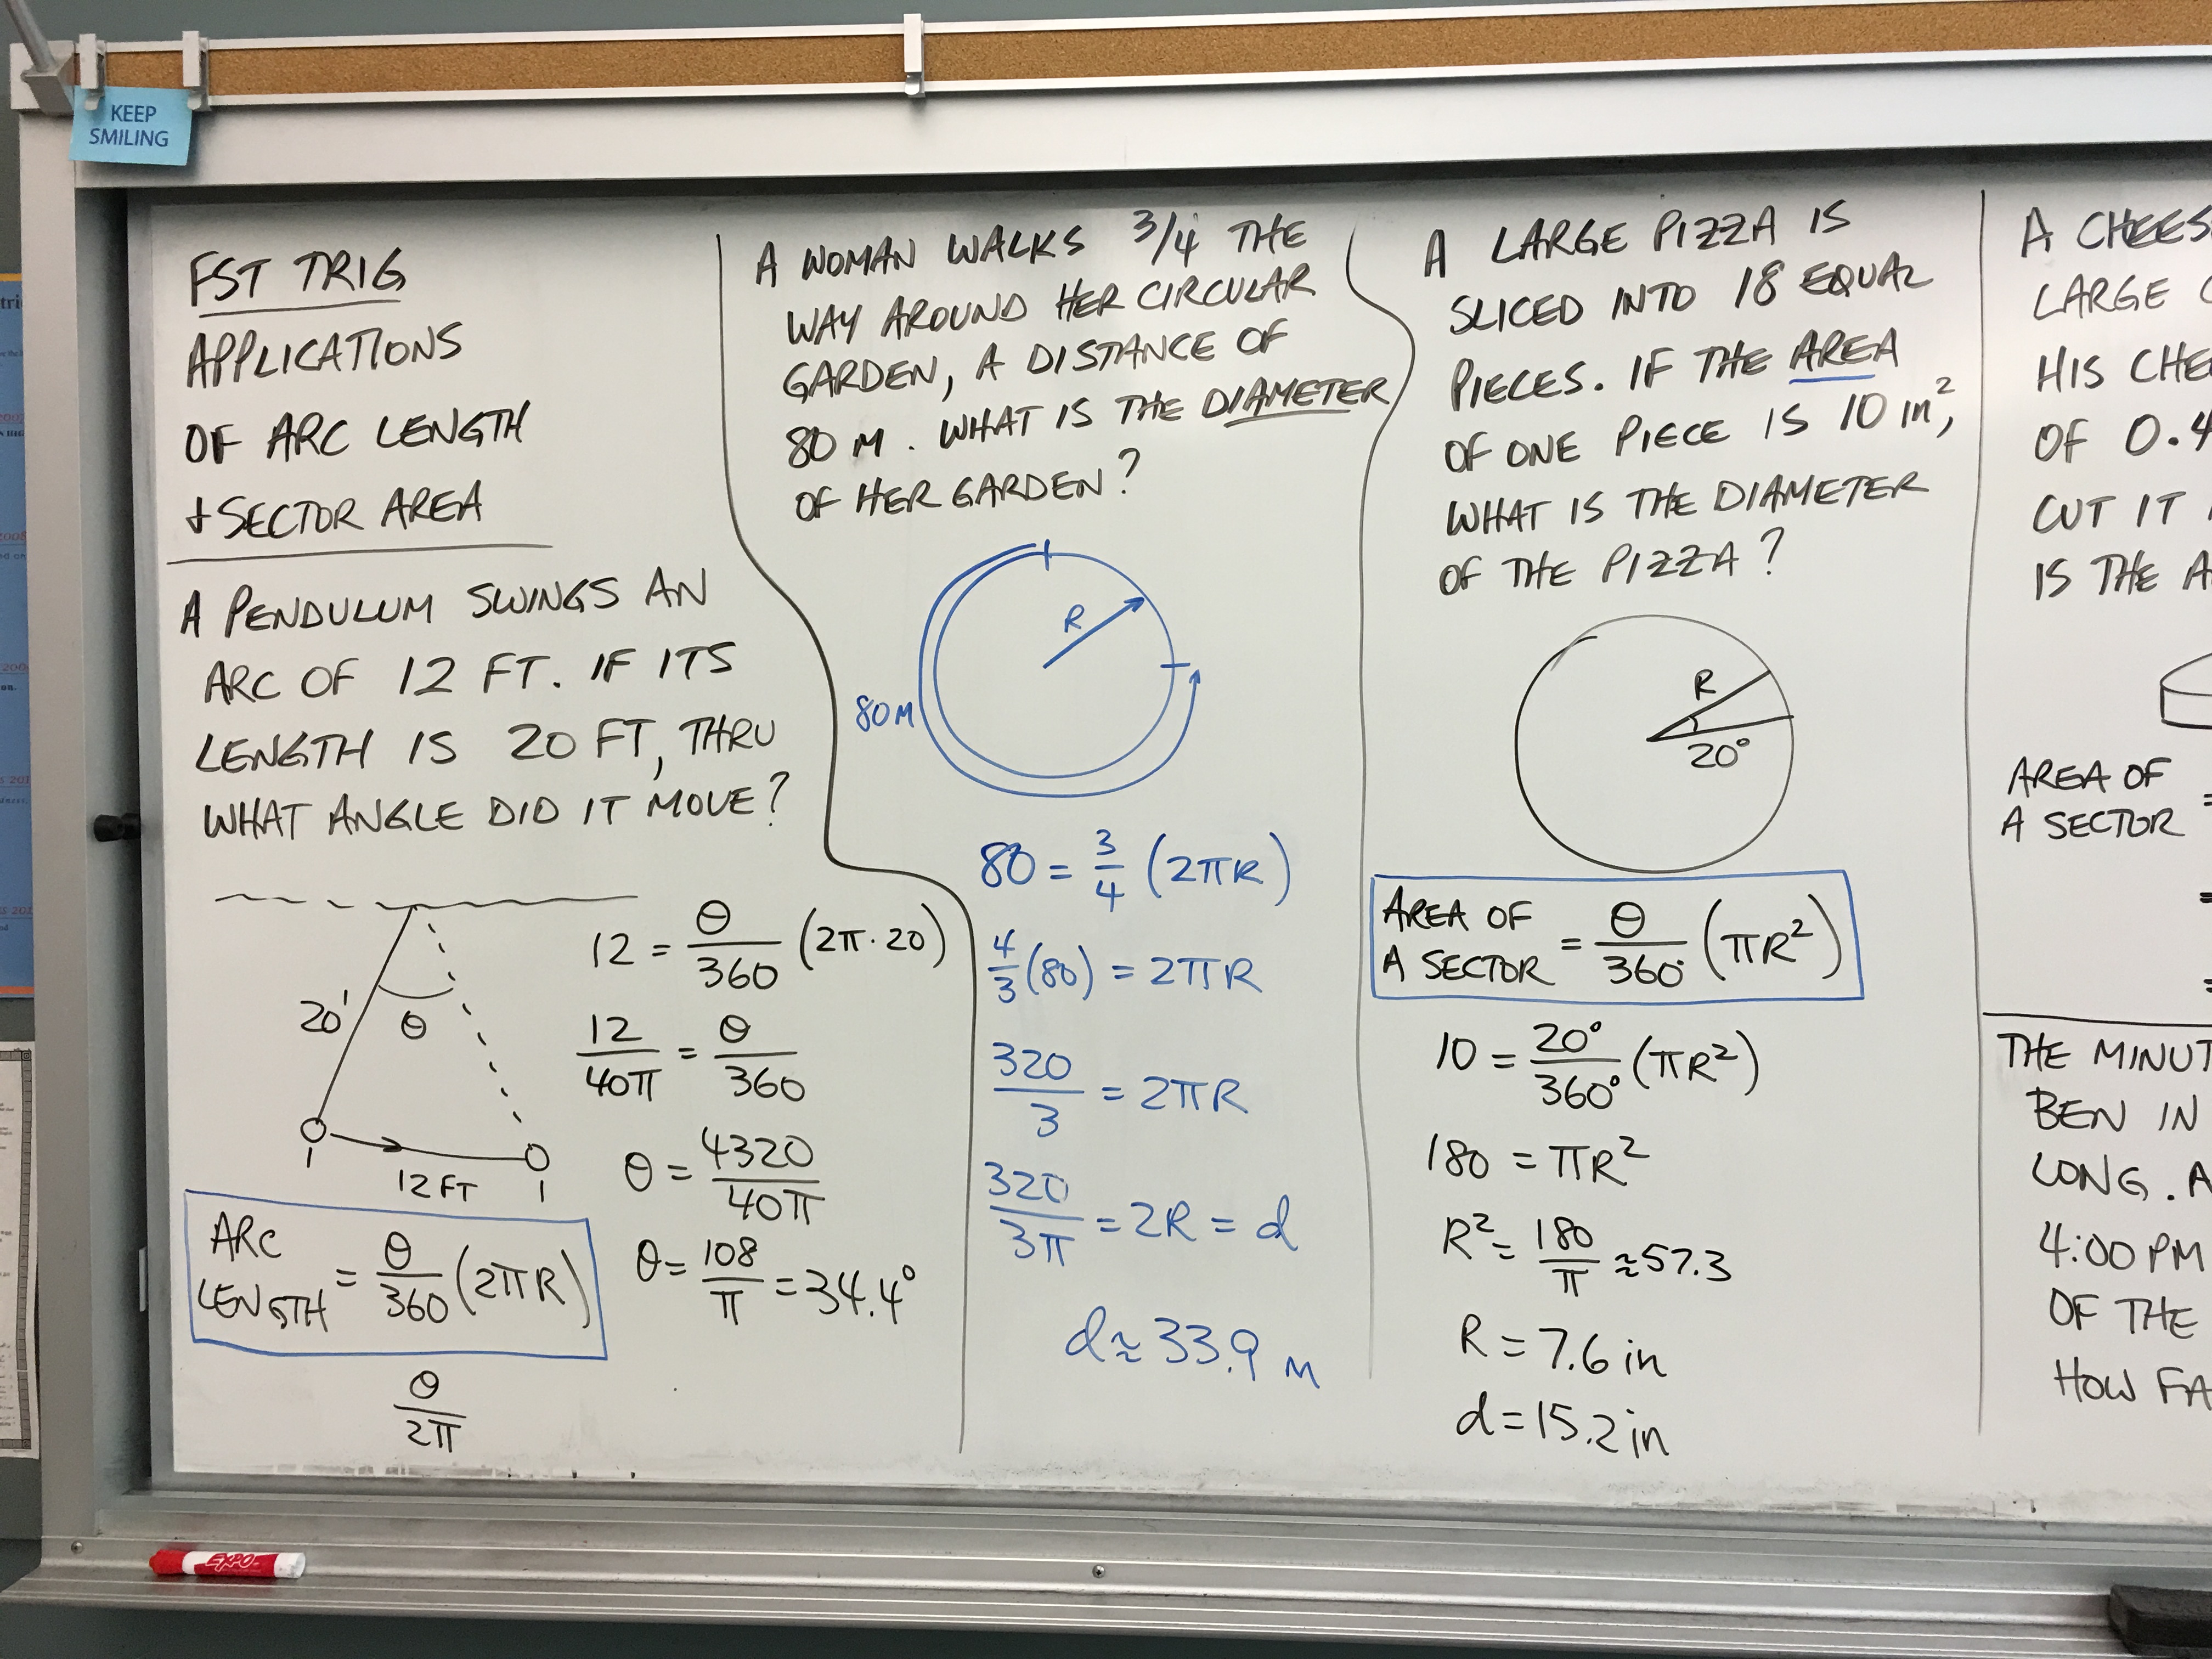 KEEP
SMILING
FST TRIG
APPLICATIONS
OF ARC LENGTH
+ SECTOR AREA
A PENDULUM SWINGS AN
ARC OF 12 FT. IF ITS
LENGTH IS 20 FT, THRU
WHAT ANGLE DID IT MOVE?
20'
θ
12 FT
ARC LENGTH = θ/360 (2πR)
θ/2π
12 = θ/360 (2π·20)
12/40π = θ/360
θ = 4320/40π
θ = 108/π = 34.4°
A WOMAN WALKS 3/4 THE
WAY AROUND HER CIRCULAR
GARDEN, A DISTANCE OF
80 M. WHAT IS THE DIAMETER
OF HER GARDEN?
R
80 M
80 = 3/4 (2πR)
4/3 (80) = 2πR
320/3 = 2πR
320/3π = 2R = d
d ≈ 33.9 M
A LARGE PIZZA IS
SLICED INTO 18 EQUAL
PIECES. IF THE AREA
OF ONE PIECE IS 10 in²,
WHAT IS THE DIAMETER
OF THE PIZZA?
R
20°
AREA OF A SECTOR = θ/360° (πR²)
10 = 20°/360° (πR²)
180 = πR²
R² = 180/π ≈ 57.3
R = 7.6 in
d = 15.2 in
A CHEES
LARGE
HIS CHE
OF 0.4
CUT IT
IS THE A
AREA OF
A SECTOR =
=
=
THE MINUT
BEN IN
LONG. A
4:00 PM
OF THE
HOW FA
EXPO